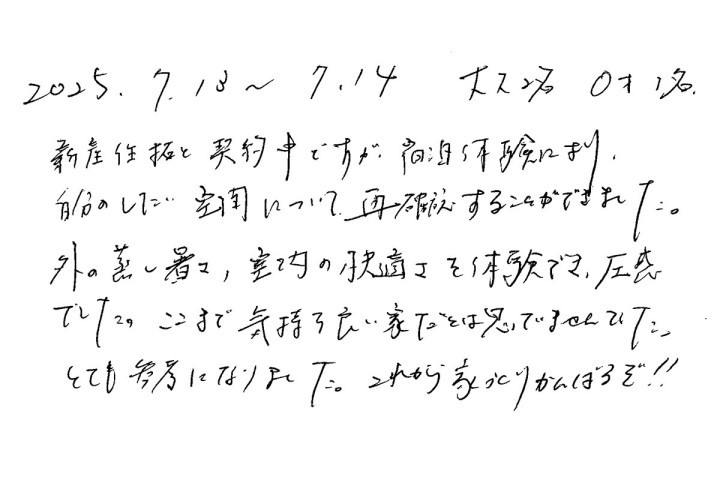 2025. 7. 13 ～ 7.14 大人2名 0才1名.
新産住拓と契約中ですが、宿泊体験により、
自分のしたい空間について、再確認することができました。
外の蒸し暑さ、室内の快適さを体験でき、圧巻
でした。ここまで気持ち良い家だとは思っていませんでした。
とても参考になりました。これから家づくりがんばるぞ!!